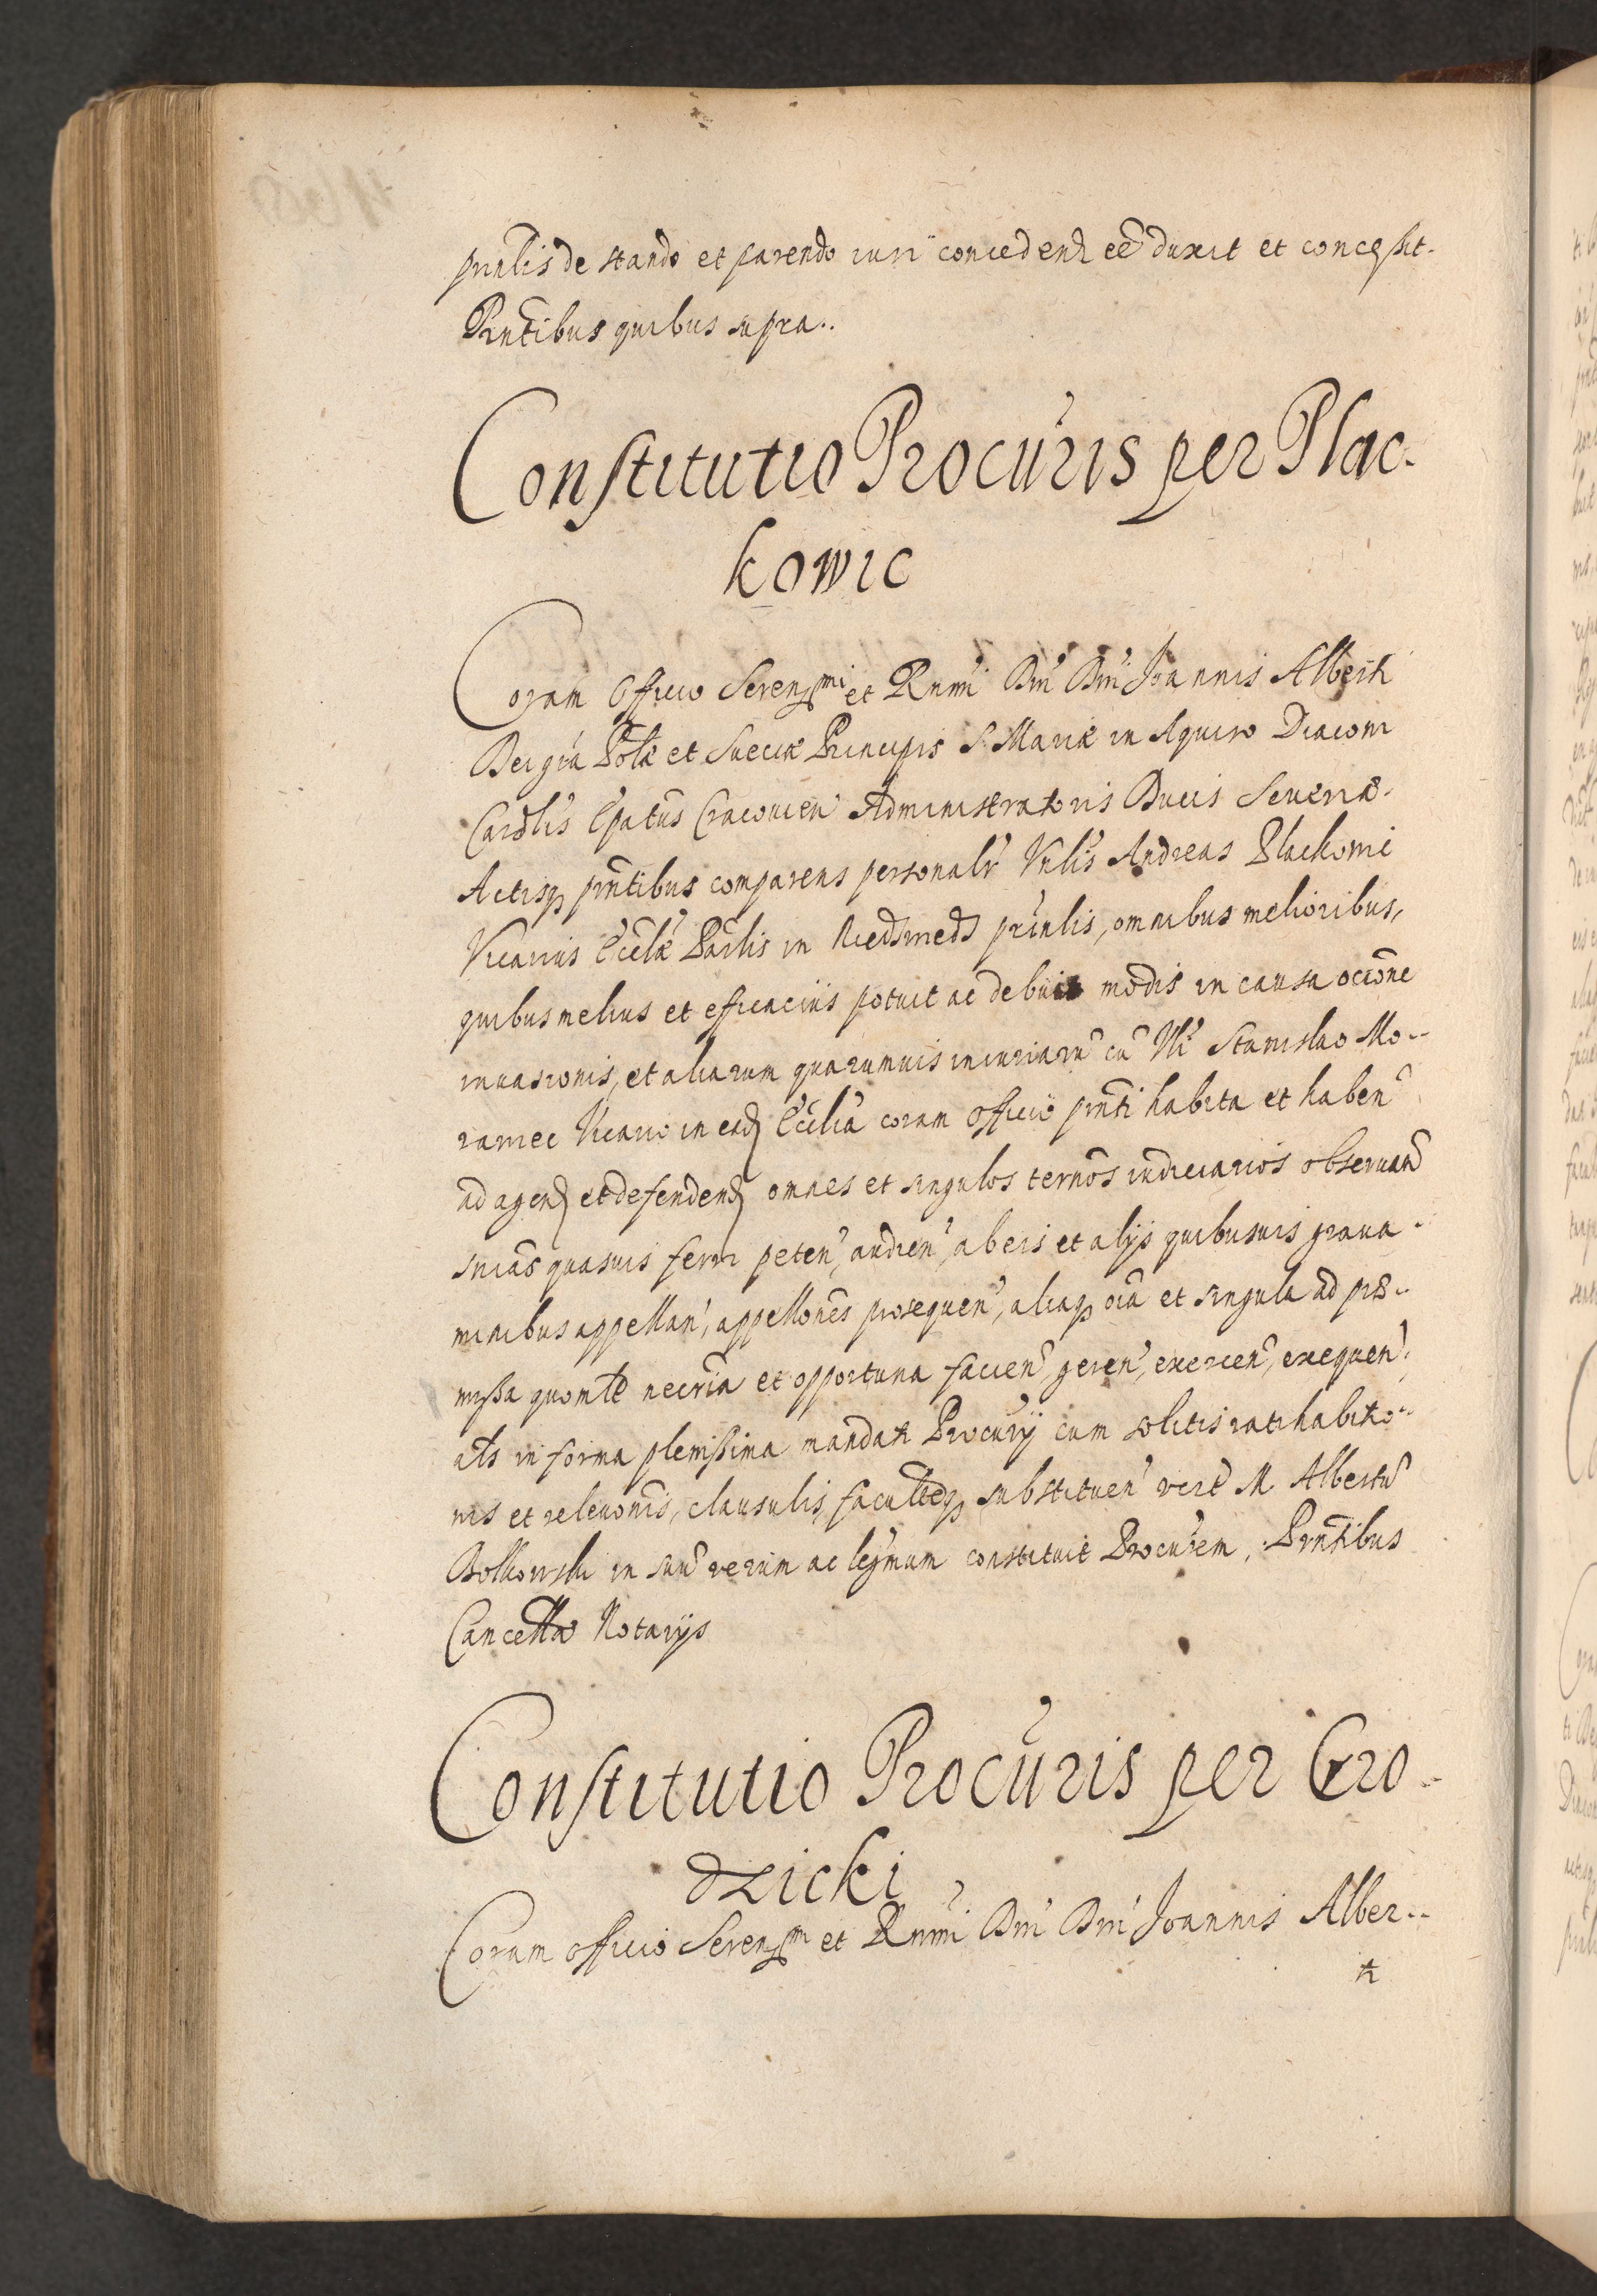 prinlis de stando et parendo iuri concedend eē duxit et concessit.
Pntibus quibus supra..
Constitutio Procuris per Plac-
kowic
Coram Officio Serenssmi et Rnmi Dni Dni Joannis Alberti
Dei gra Polæ et Sueciæ Principis S. Mariæ in Aquiro Diaconi
Cardlis Epatus Cracouien Administratoris Ducis Seueriæ.
Actisq pntibus comparens personalr Vnlis Andreas Plackowic
Vicarius Ecclæ Parlis in prinlis, omnibus melioribus,
quibus melius et efficacius potuit ac debuit modis in causa occione
inuasionis, et aliarum quarumuis iniuriaru cu Vli Stanislao Mo-
rawiec Vicario in ead Ecclia coram Officio pnti habita et haben
ad agend et defendend omnes et singulos ternos iudiciarios obseruand
sncias quasuis ferri peten, audien, ab eis et alijs quibusuis graua-
minibus appellan, appellones prosequen, aliaq oia et singula ad præ-
missa quomlt necria et opportuna facien, geren, exercen, exequen,
als in forma plenissima mandati Procurij cum solitis ratihabitio-
nis et releuonis, clausulis, faculteq substituen vert M. Albertu
Bolkowski in suu verum ac legmum constituit Procurem, Prntibus
Cancellæ Notarijs
Constitutio Procuris per Gro-
dzicki
Coram officio Serenssmi et Rnmi Dni Dni Joannis Alber-
ti